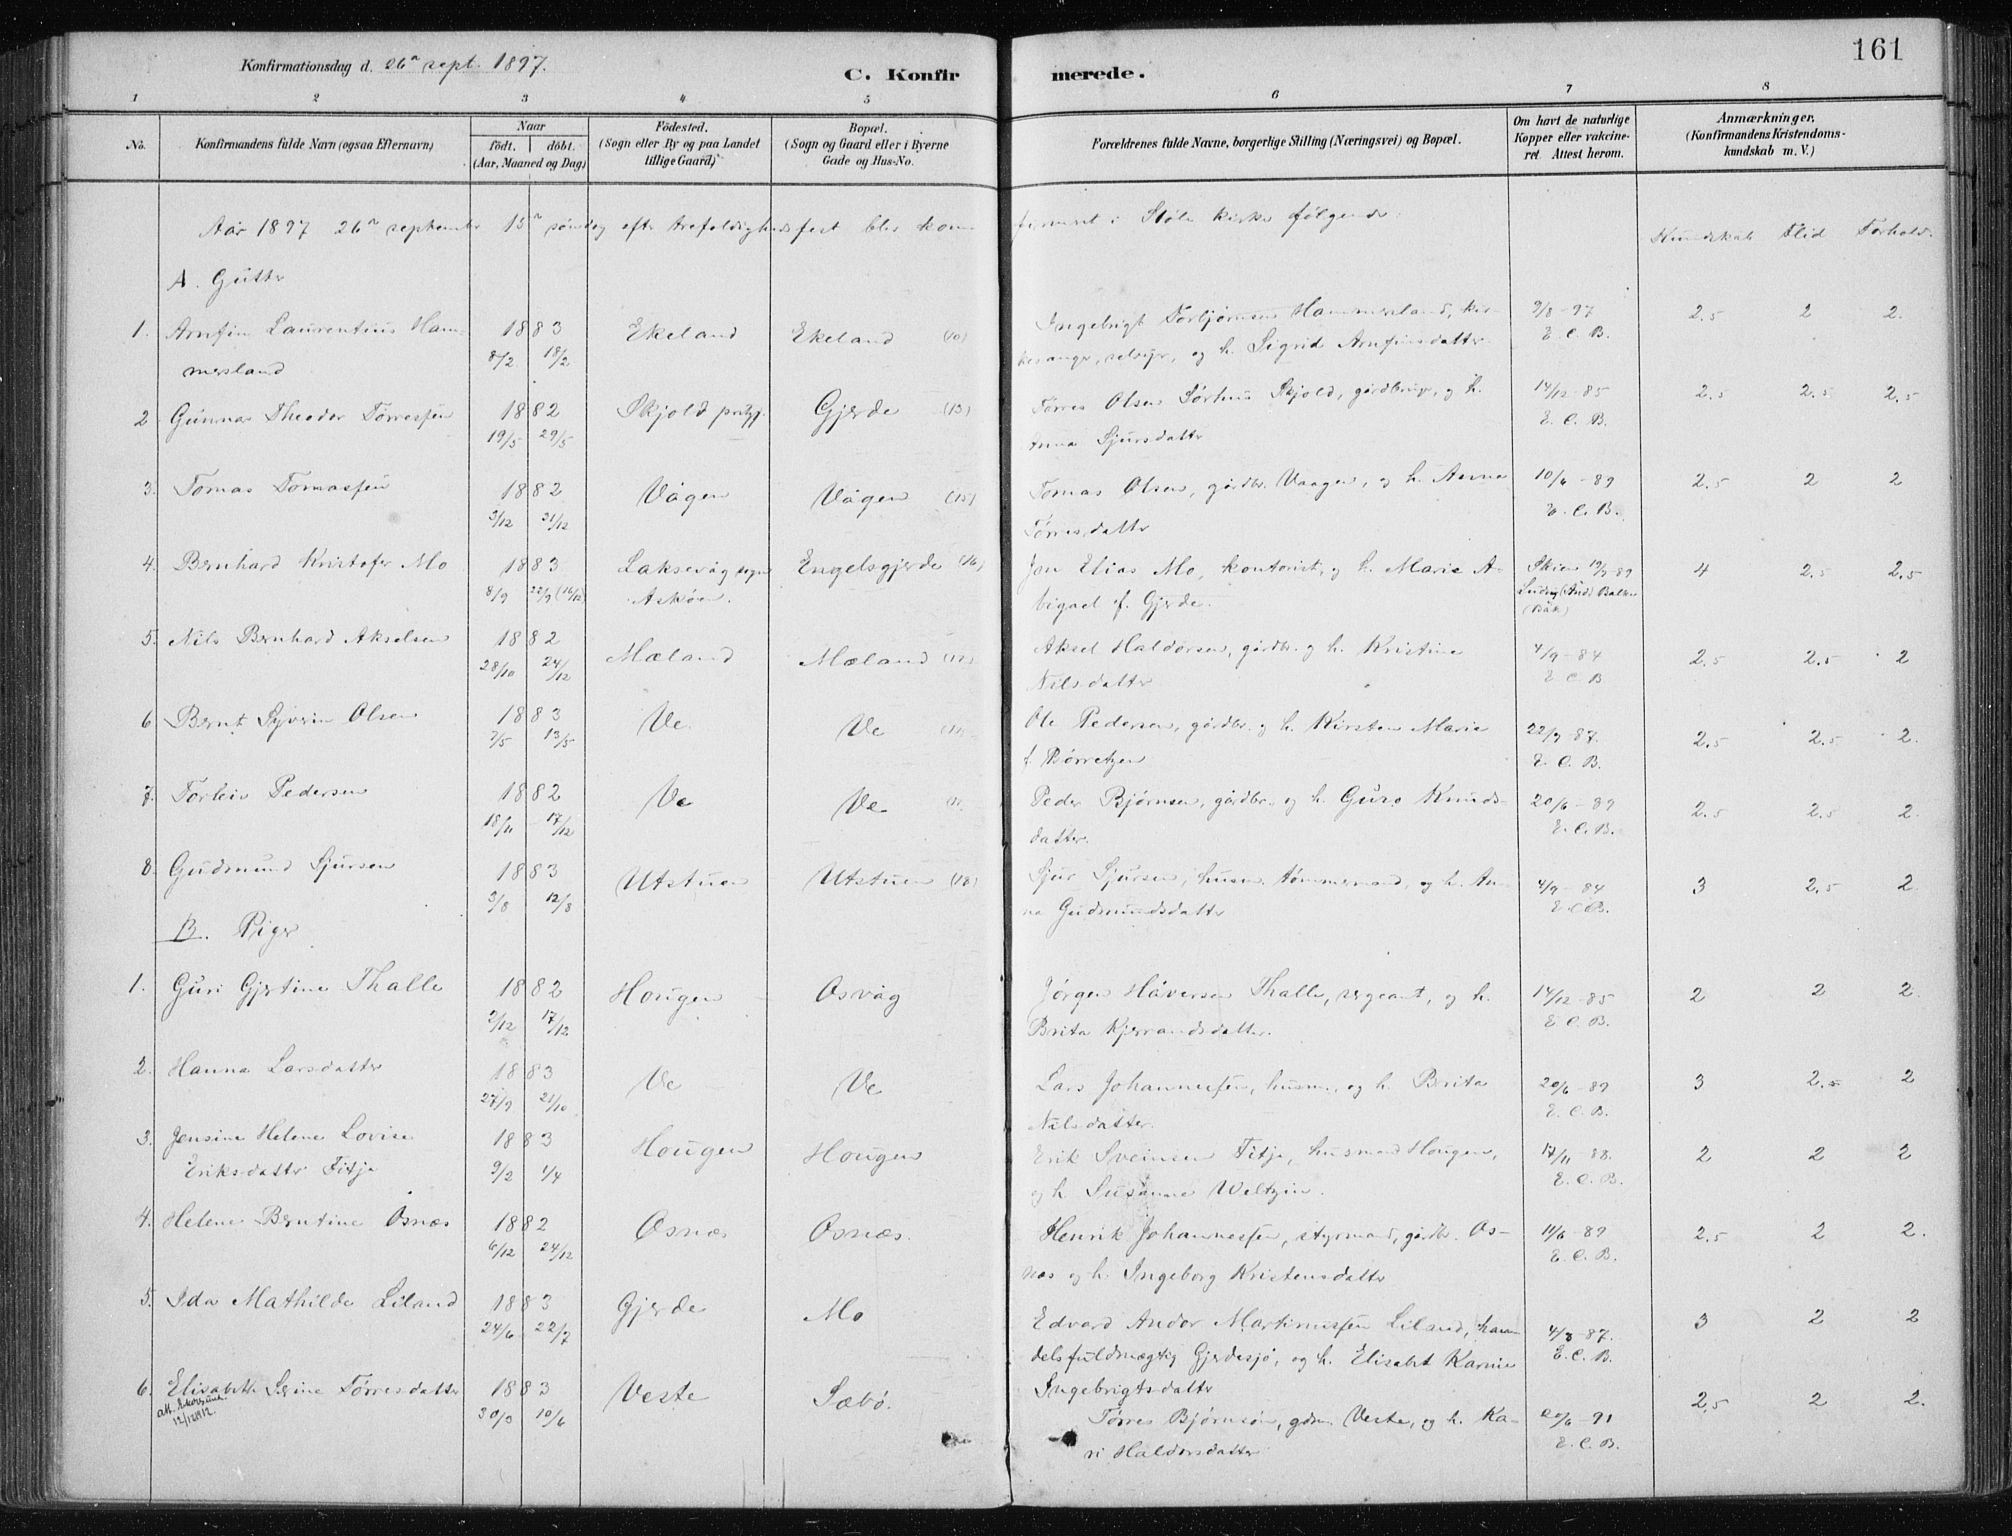 161
Konfirmationsdag d. 26n sept. 1897.
C. Konfirmerede.
1 2 3 4 5 6 7 8
No.
Konfirmandens fulde Navn (ogsaa Efternavn)
Naar
født. døbt.
(Aar, Maaned og Dag)
Fødested.
(Sogn eller By og paa Landet
tillige Gaard)
Bopæl.
(Sogn og Gaard eller i Byerne
Gade og Hus-No.
Forældrenes fulde Navne, borgerlige Stilling (Næringsvei) og Bopæl.
Om havt de naturlige
Kopper eller vakcine-
ret. Attest herom.
Anmærkninger.
(Konfirmandens Kristendoms-
kundskab m. V.)
Aar 1897 26n september 15n søndag efter trefoldighedsfest blev kon-
firmeret i Støle kirke følgende:
Kundskab Flid Forhold.
A. Gutter
1. Arnfin Laurentius Ham- 1883 Ekeland Ekeland (10) Ingebrigt Torbjørnsen Hammersland, kir- 9/8-97 2.5 2 2.
mersland 8/2 18/2 kesanger, og h. Sigrid Arnfinsdatter E.C.B.
2 Gunnar Theodor Tørressen 1882 Skjold prstgj. Gjerde (13) Tørres Olsen Sørhus Skjold, gårdbruger, og h. 14/12-85 2.5 2.5 2.5
19/5 29/5 Anna Sjursdatter E.C.B.
3. Tomas Tomassen 1882 Vågen Vågen (15) Tomas Olsen, gårdbr. Vaagen, og h. Anna 10/6-89 2.5 2 2
3/12 31/12 Tørresdatter E.C.B.
4. Bernhard Kristofer Mo 1883 Laksevåg sogn Engelsgjerde (16) Jon Elias Mo, kontorist, og h. Marie A- Skien 19/9-89 4 2.5 2.5
8/9 22/9 (16/12) Askøen. bigael f. Gjerde.
5. Nils Bernhard Akselsen 1882 Mæland Mæland (17) Aksel Haldorsen, gårdbr. og h. Kristine 4/9-84 2.5 2.5 2
28/10 24/12 Nilsdatter E.C.B
6 Bernt Syverin Olsen 1883 Ve Ve Ole Pedersen, gårdbr. og h. Kirsten Marie 22/9-87. 2.5 2.5 2.
7/5 13/5 f. Børretzen E.C.B.
7. Torleiv Pedersen 1882 Ve Ve Peder Bjørnsen, gårdbr. og h. Guro Knuds- 20/6-89 2.5 2.5 2.
18/11 17/12 datter. E.C.B.
8. Gudmund Sjursen 1883 Utstuen Utstuen (18) Sjur Sjursen, husm. tømmermand, og h. An- 4/9-84 3 2.5 2.
3/8 12/8 na Gudmundsdatter E.C.B.
B. Piger
1. Guri Gjertine Thalle 1882 Hougen Osvåg Jørgen Håversen Thalle, sergeant, og h. 14/12-85 2 2 2.
2/12 17/12 Brita Kjerrandsdatter. E.C.B.
2. Hanna Larsdatter 1883 Ve Ve Lars Johannessen, husm., og h. Brita 20/6-89 3 2.5 2
27/9 21/10 Nilsdatter. E.C.B.
3. Jensine Helene Lovise 1883 Hougen Hougen Erik Sveinsen Fitja, husmand Hougen, 17/11 88. 2 2 2
Eriksdatter Fitja 9/2 1/4 og h. Susanne Weltzin. E.C.B.
4. Helene Berntine Osnæs 1882 Osnæs Osnæs. Henrik Johannessen, styrmand, gårdbr. Os- 11/6-89 2.5 2 2.
6/12 24/12 næs og h. Ingeborg Kristensdatter E.C.B.
5. Ida Mathilde Liland 1883 Gjerde Mo Edvard Andor Martinussen Liland, han- 4/8-87. 3 2 2
24/6 22/7 delsfuldmægtig Gjerdesjø, og h. Elisabet Karine E.C.B.
Ingebrigtsdatter
6. Elisabeth Serine Tørresdatter 1883 Veste Sæbø. Tørres Bjørnsøn, gdm. Veste, og h. Ka- 20/6-91 2.5 2 2.
12/12 1912. 30/3 10/6 ri Haldorsdatter E.C.B.